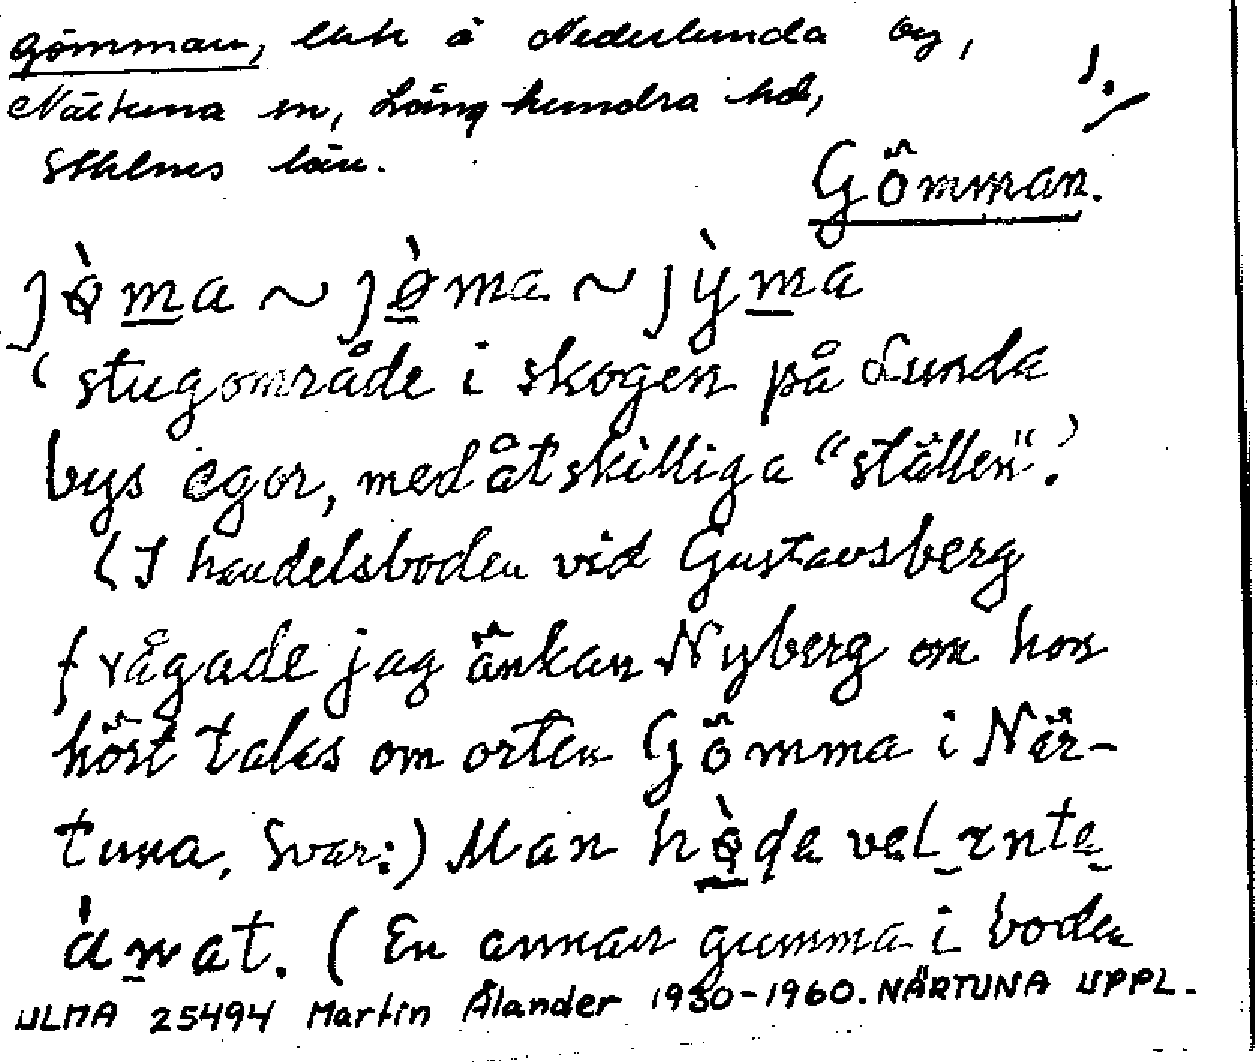 Gömman, läh å Nederlunda by,
Närtuna sn, Långhundra hd,
Sthlms län.
1.
Gömman.
jø̀ma ~ jø̀ma ~ jỳma
'stugområde i skogen på Lunda
bys egor, med åtskilliga "ställen".'
(I handelsboden vid Gustavsberg
frågade jag änkan Nyberg om hon
hört talas om orten Gömma i När-
tuna. Svar:) Man hø̀ḍa vel ınte
ànat. (En annan gumma i boden
ULMA 25494 Martin Ålander 1930-1960. NÄRTUNA UPPL.